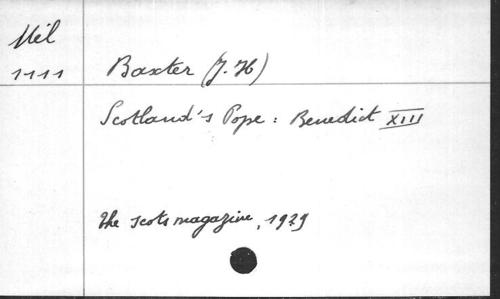 Mél
1111
Baxter (J. H)
Scotland's Pope : Benedict XIII
the scots magazine, 1929